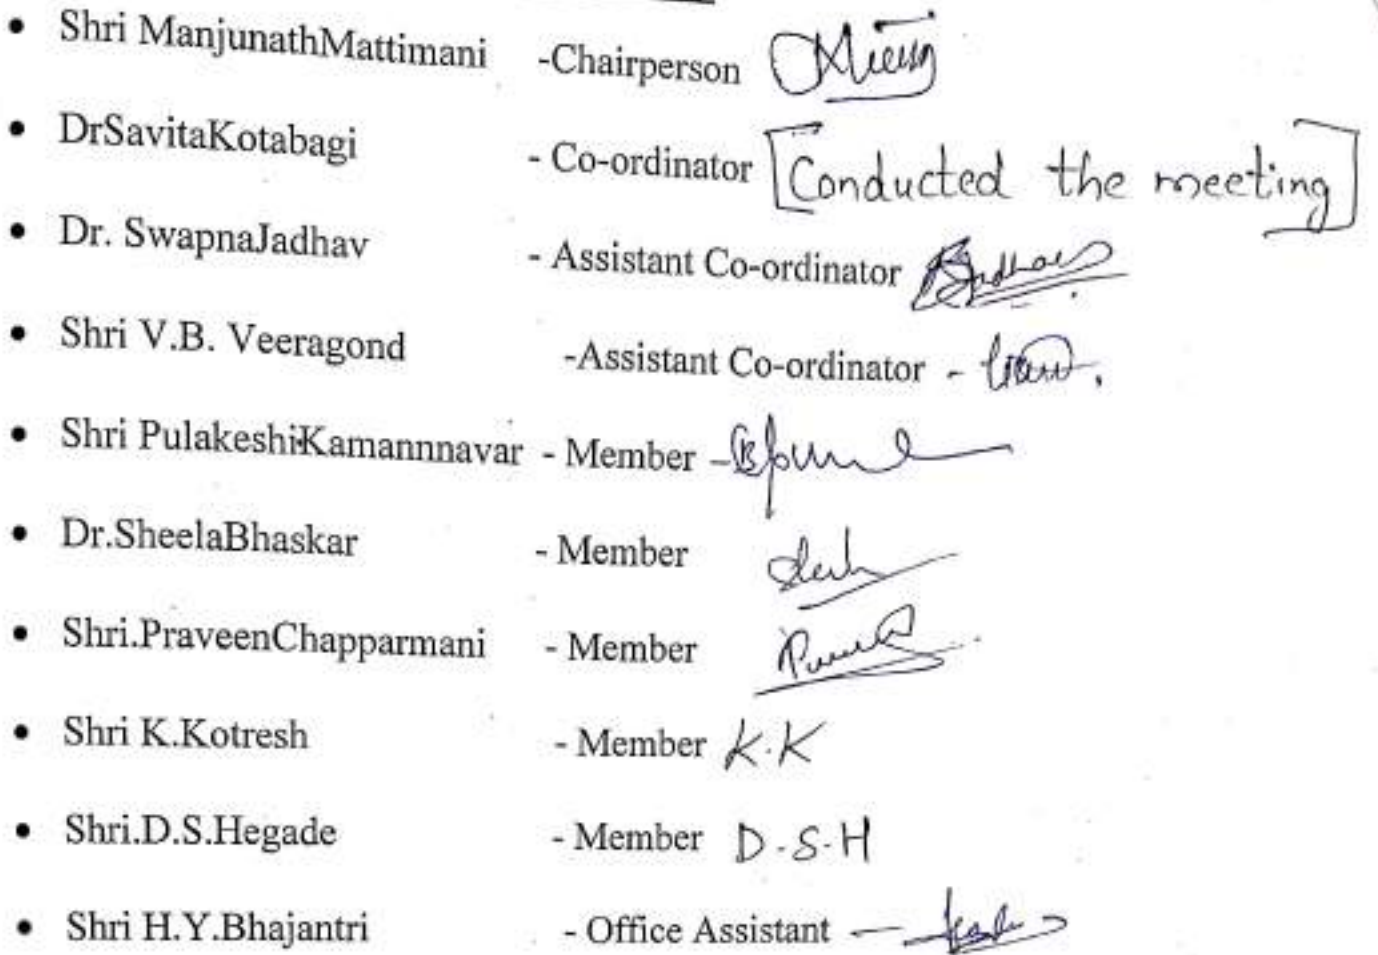 • Shri ManjunathMattimani -Chairperson
• DrSavitaKotabagi - Co-ordinator [Conducted the meeting]
• Dr. SwapnaJadhav - Assistant Co-ordinator
• Shri V.B. Veeragond -Assistant Co-ordinator -
• Shri PulakeshiKamannnavar - Member -
• Dr.SheelaBhaskar - Member
• Shri.PraveenChapparmani - Member
• Shri K.Kotresh - Member K.K
• Shri.D.S.Hegade - Member D.S.H
• Shri H.Y.Bhajantri - Office Assistant —